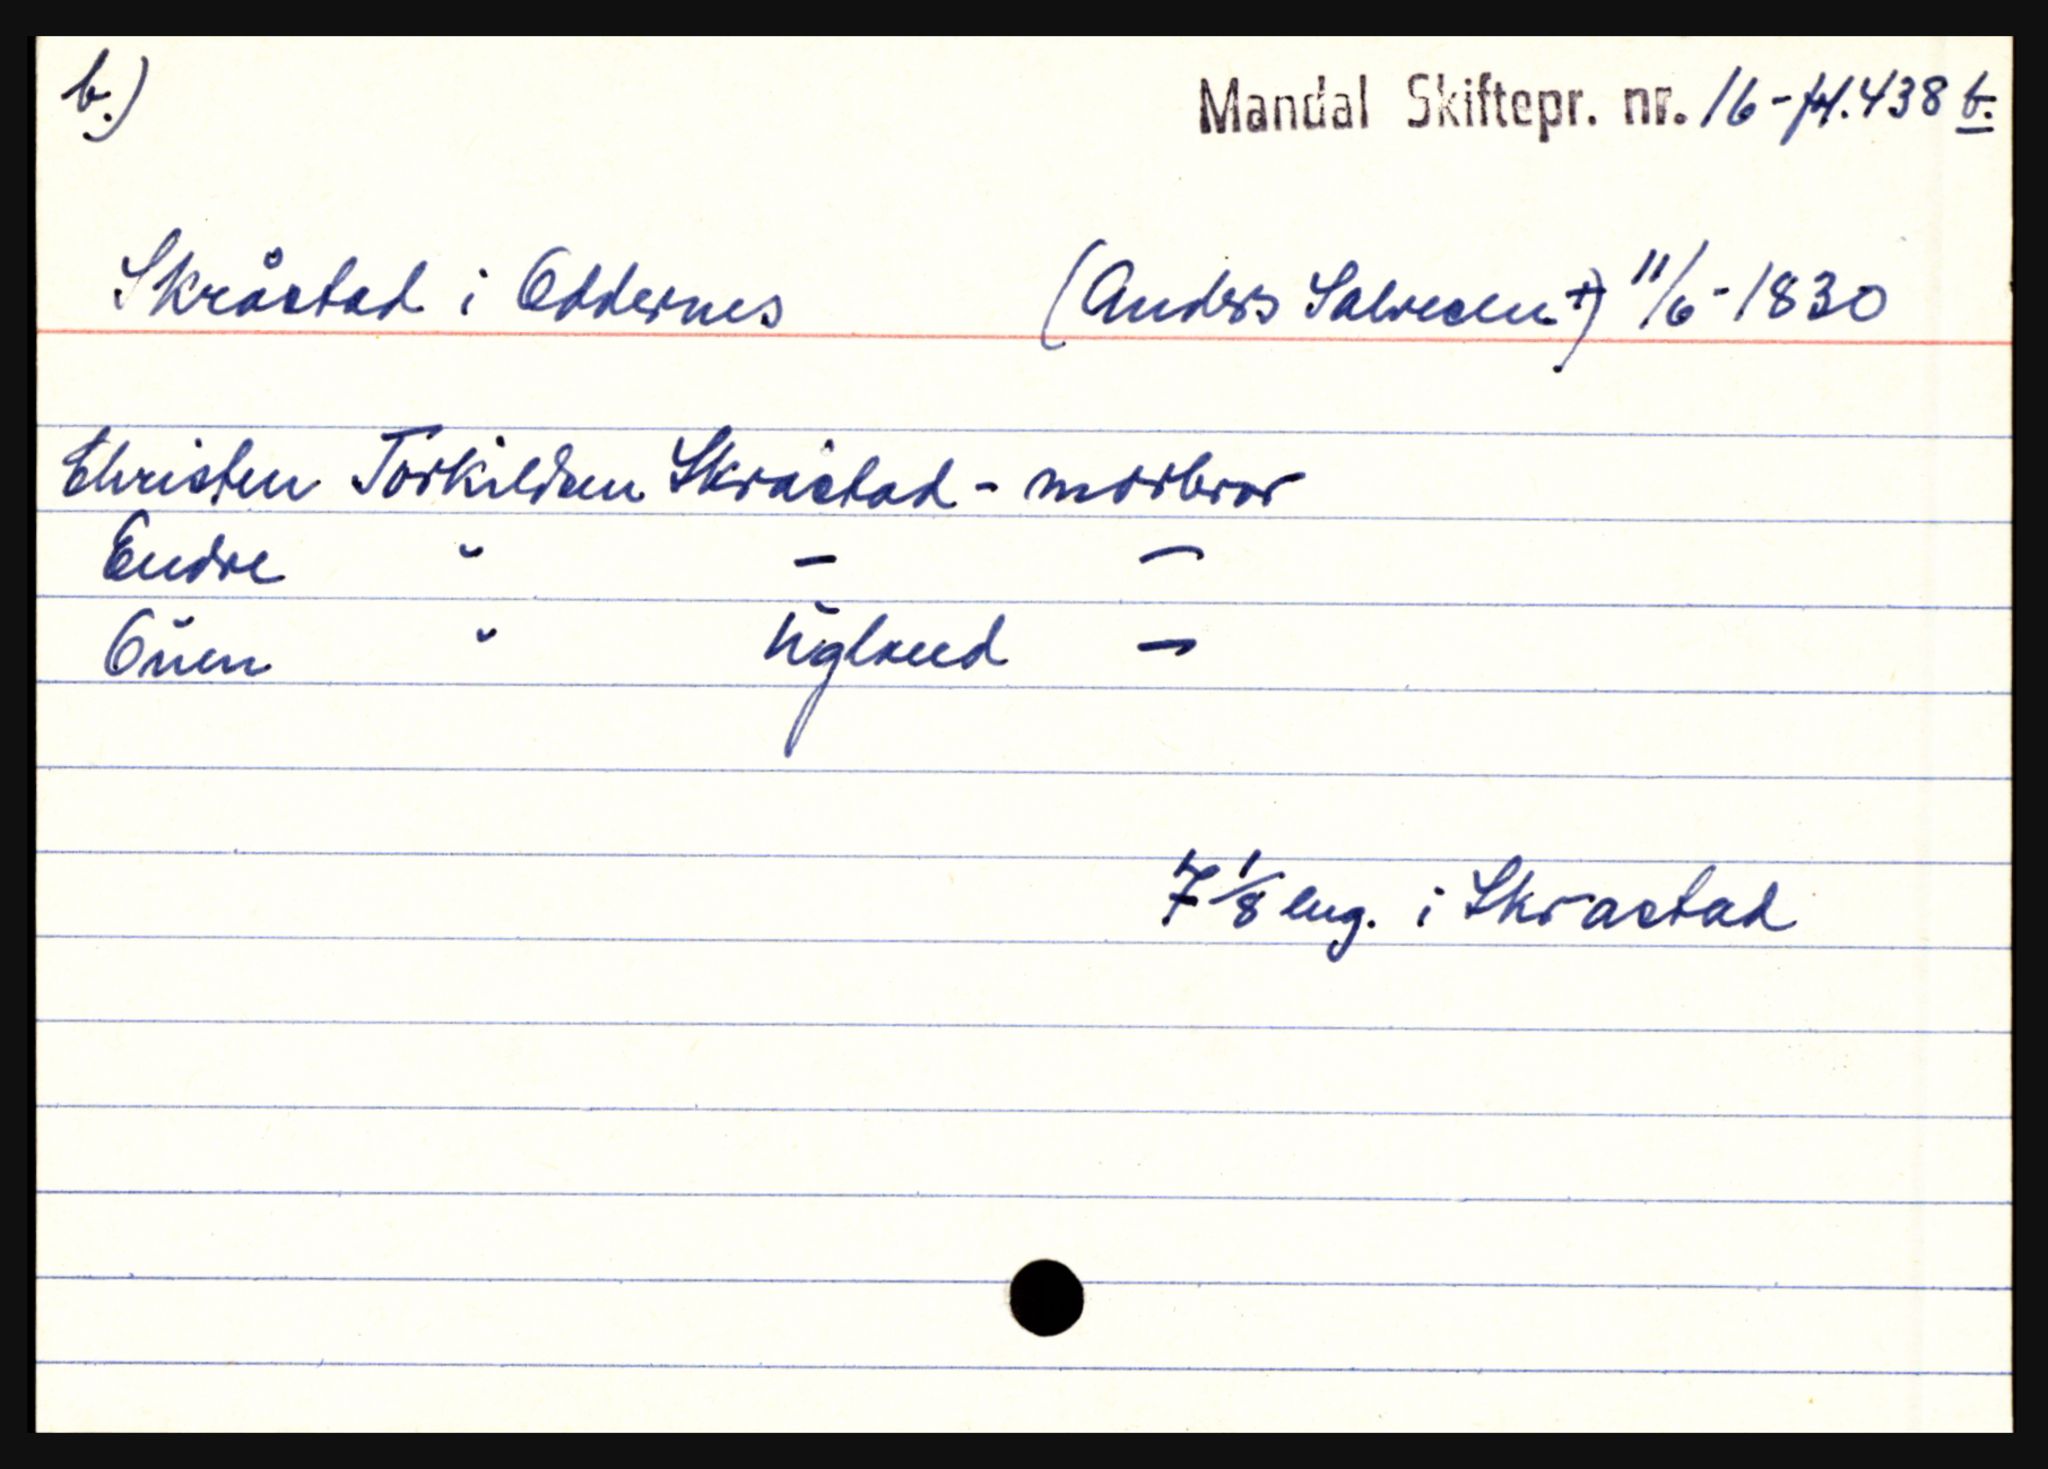 b.)
Mandal Skiftepr. nr. 16 - fol. 438 b.
Skråstad i Oddernes (Anders Salvesen †) 11/6 - 1830
Christen Torkildsen Skråstad - morbror
Endre " - -
Ouen " Ugland -
7 1/8 eng. i Skrastad